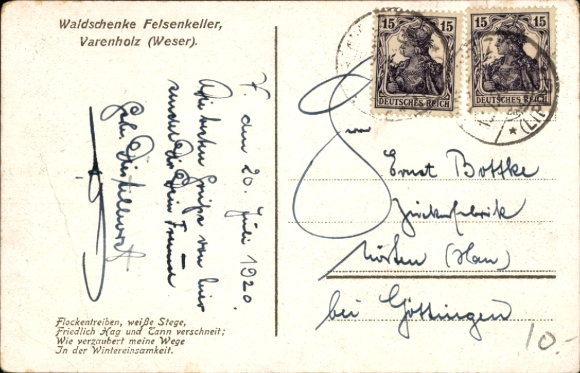 Waldschenke Felsenkeller,
Varenholz (Weser).
15 15
DEUTSCHES REICH
15 15
DEUTSCHES REICH
(LIPPE
V. den 20. Juli 1920.
Die besten Grüße von hier
sendet Dir Dein Freund
Flockentreiben, weiße Stege,
Friedlich Hag und Tann verschneit;
Wie verzaubert meine Wege
In der Wintereinsamkeit.
Ernst Bottke
Zuckerfabrik
Nörten (Han)
bei Göttingen
10.-